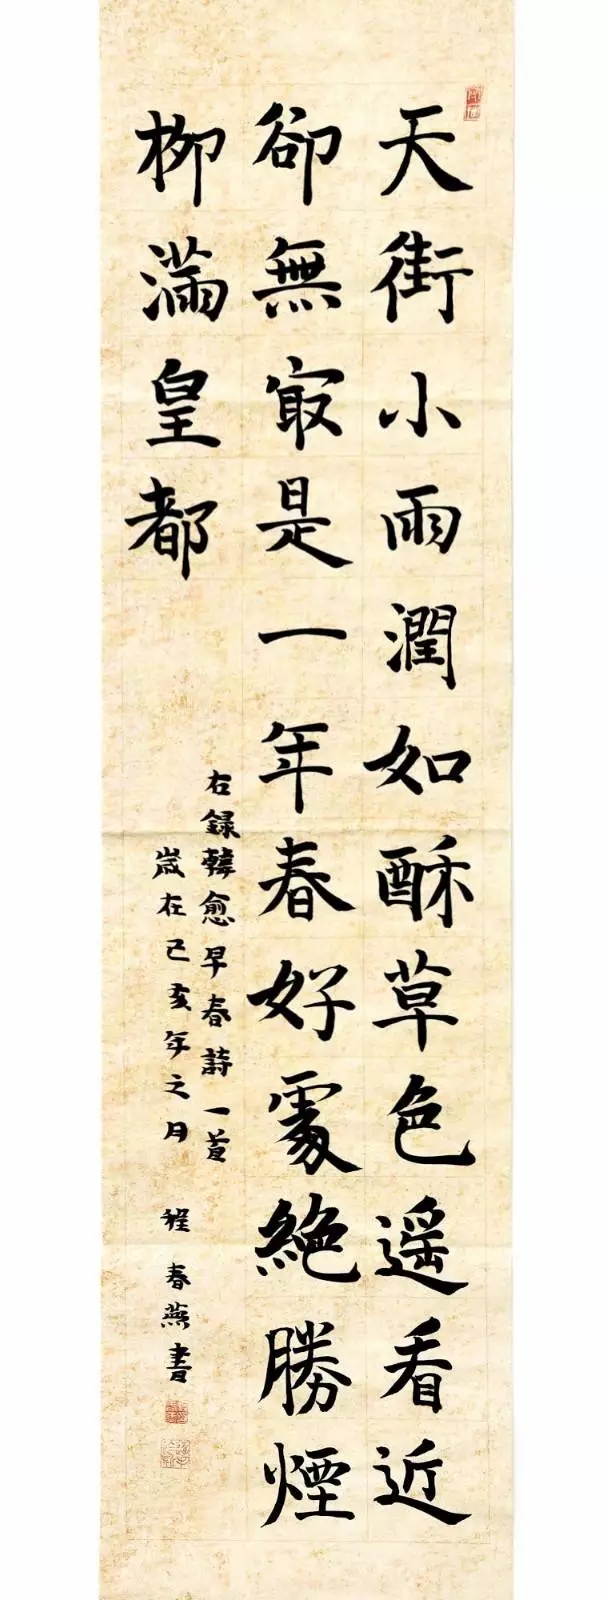 天街小雨潤如酥草色遥看近
卻無冣是一年春好處絶勝煙
柳滿皇都
右録韓愈早春詩一首
歲在己亥年之月
程春燕書